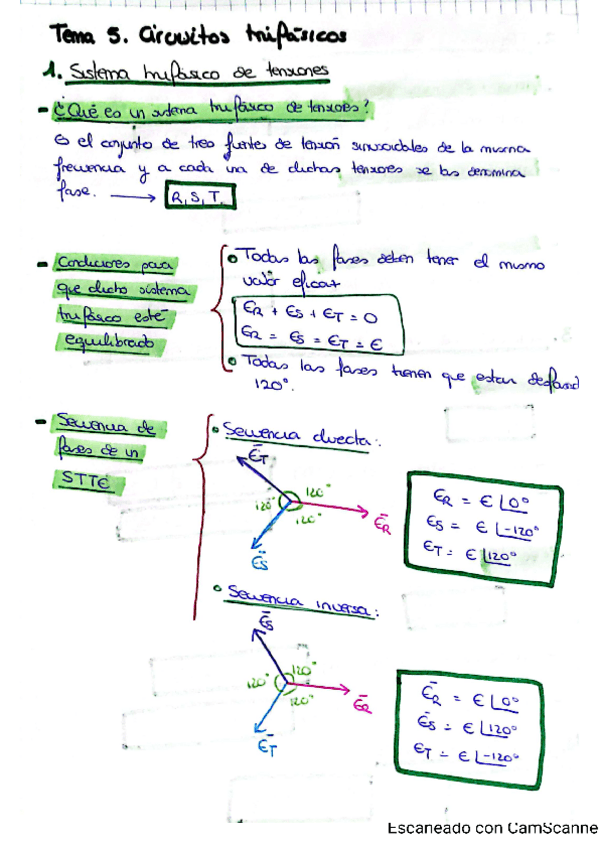 Tema 5. Circuitos trifásicos
1. Sistema trifásico de tensiones
- ¿Qué es un sistema trifásico de tensiones?
Es el conjunto de tres fuentes de tensión sinusoidales de la misma
frecuencia y a cada una de dichas tensiones se las denomina
fase. → R, S, T.
- Condiciones para
que dicho sistema
trifásico esté
equilibrado
• Todas las fases deben tener el mismo
valor eficaz
ER + ES + ET = 0
ER = ES = ET = E
• Todas las fases tienen que estar desfasad
120°.
- Secuencia de
fases de un
STTE
• Secuencia directa:
ĒT
120°
120°
120°
ĒR
ĒS
ER = E ∟0°
ES = E ∟-120°
ET = E ∟120°
• Secuencia inversa:
ĒS
120°
120°
120°
ĒR
ĒT
ĒR = E ∟0°
ĒS = E ∟120°
ET = E ∟-120°
Escaneado con CamScanne